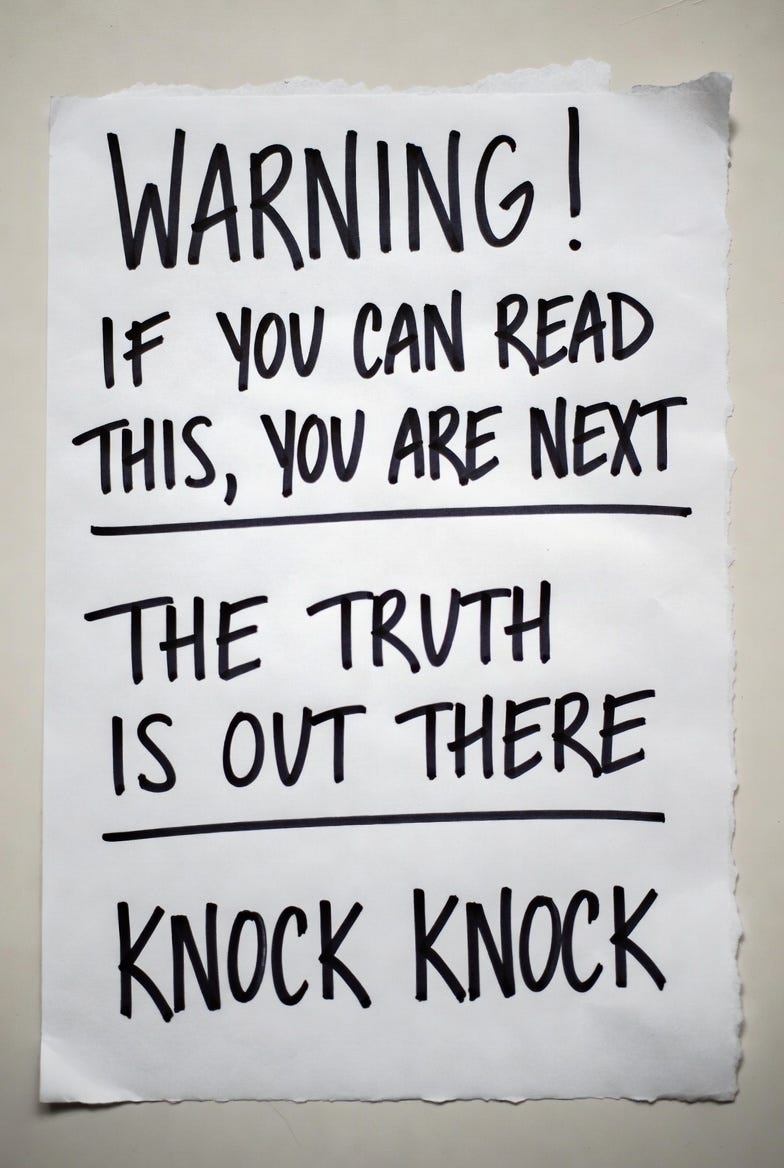 WARNING!
IF YOU CAN READ
THIS, YOU ARE NEXT
THE TRUTH
IS OUT THERE
KNOCK KNOCK